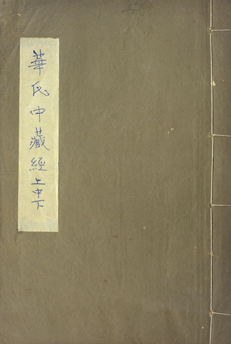 華氏中藏經上中下